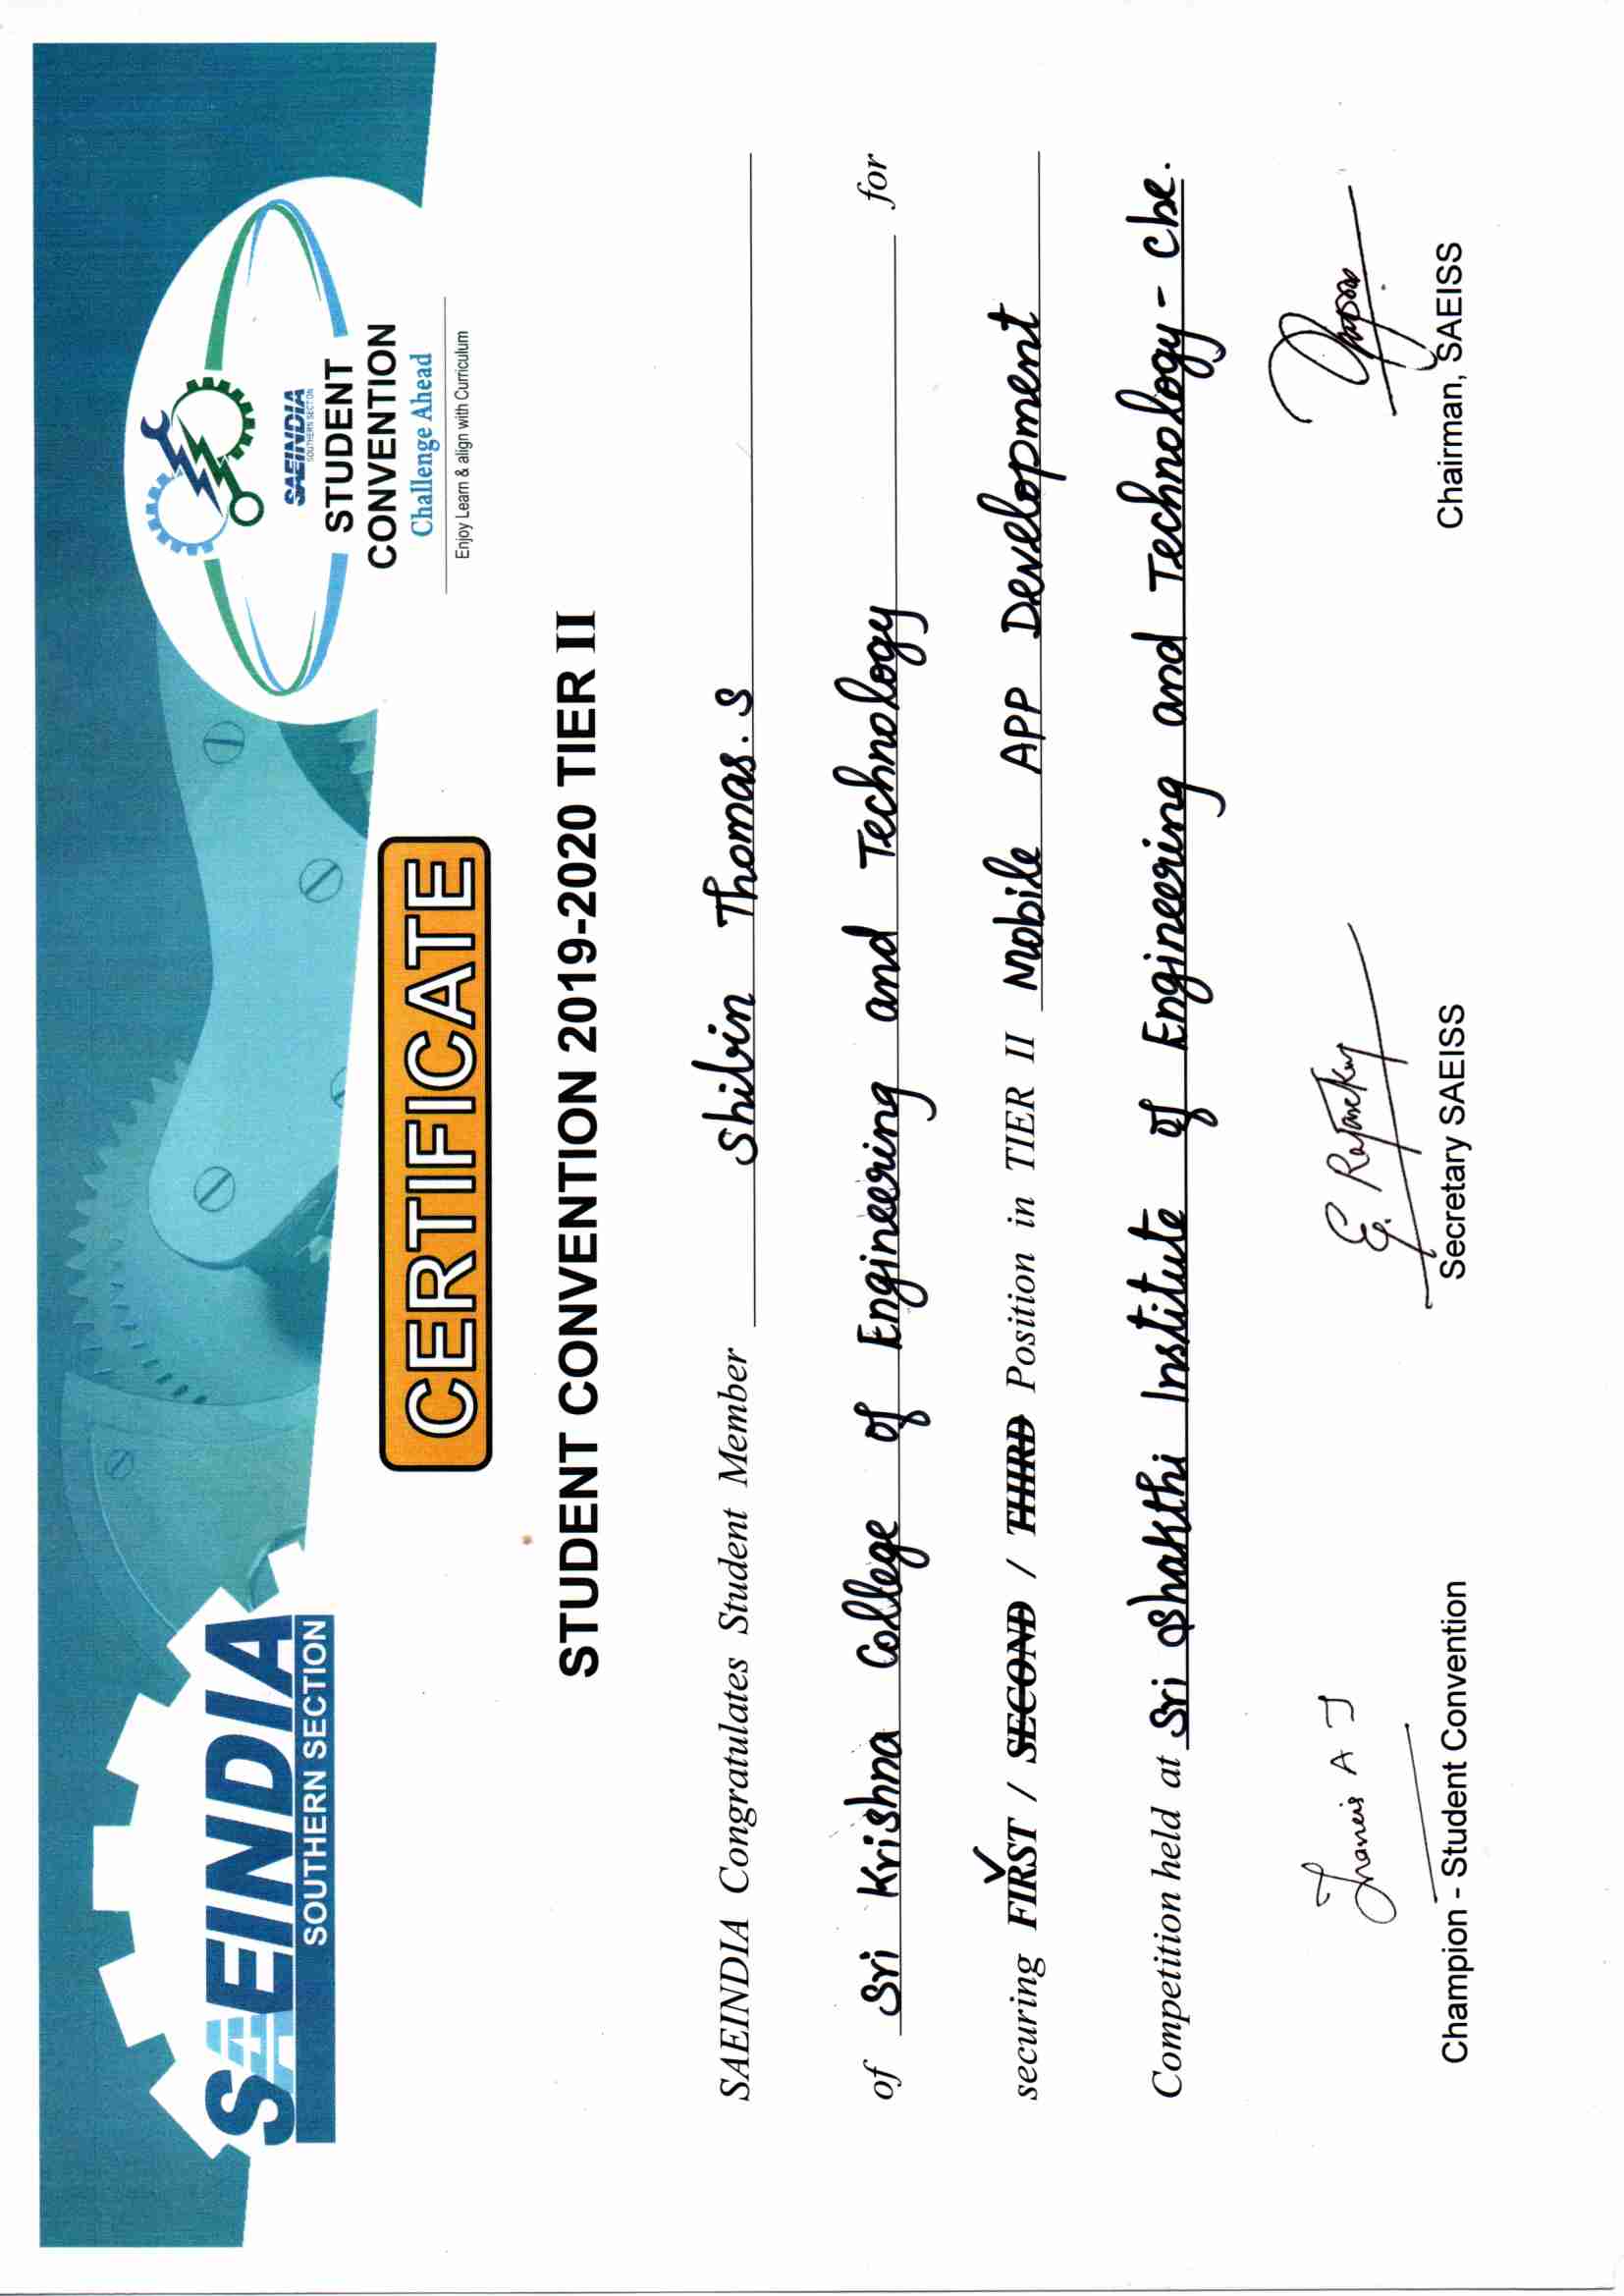 SAEINDIA
SOUTHERN SECTION
SAEINDIA
SOUTHERN SECTION
STUDENT
CONVENTION
Challenge Ahead
Enjoy Learn & align with Curriculum
CERTIFICATE
STUDENT CONVENTION 2019-2020 TIER II
SAEINDIA Congratulates Student Member Shibin Thomas. S
of Sri Krishna College of Engineering and Technology for
securing FIRST / SECOND / THIRD Position in TIER II Mobile APP Development
Competition held at Sri Shakthi Institute of Engineering and Technology - Cbe.
Francis A J
E. Rajasekar
Champion - Student Convention
Secretary SAEISS
Chairman, SAEISS